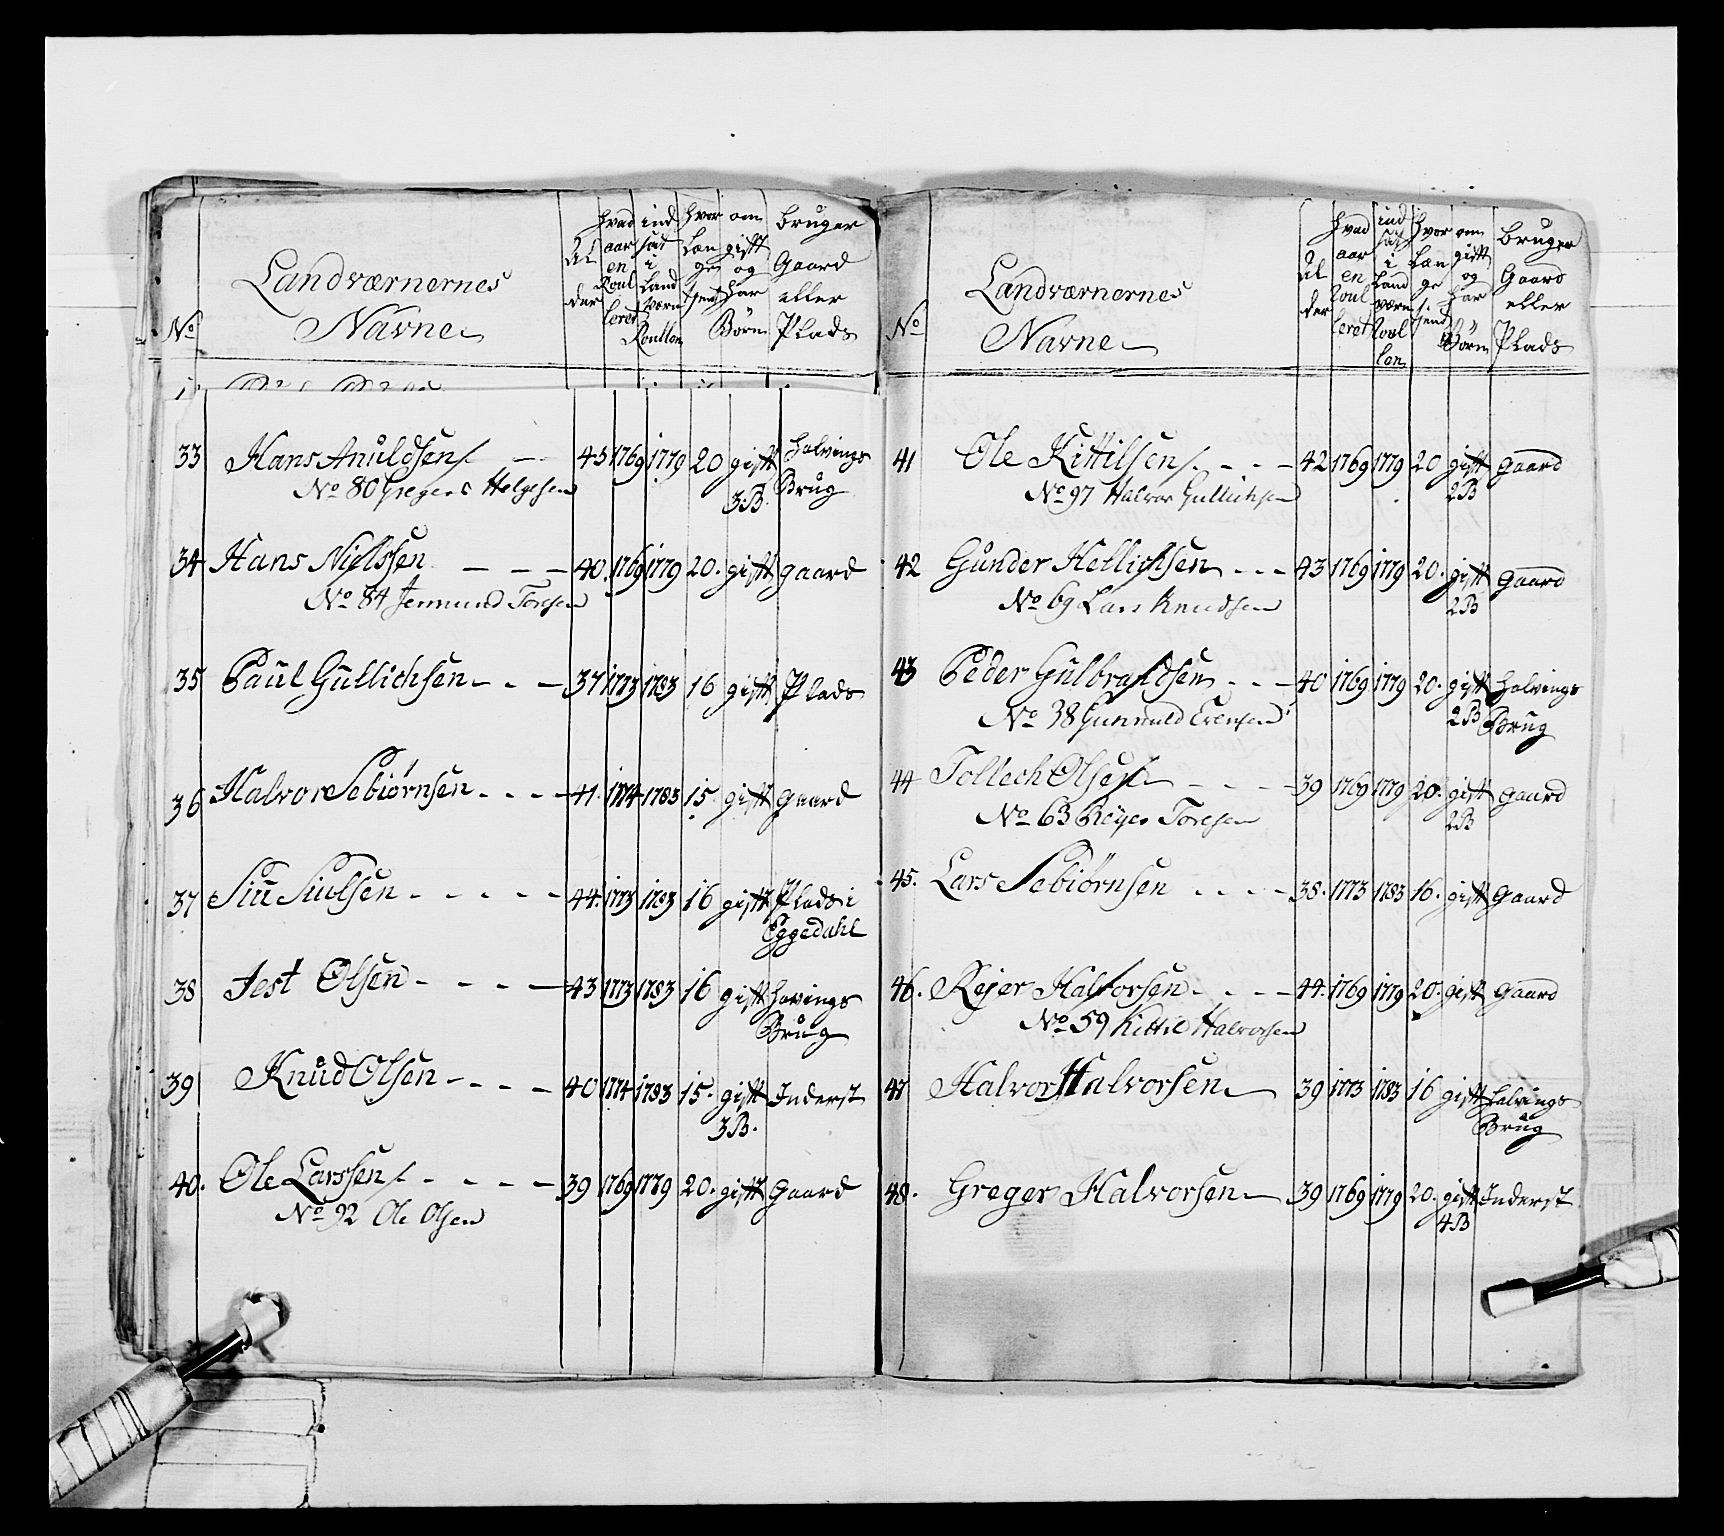 No Landværnernes Navne Alder hvad aar en Roulleret ind sat i Land værn Roullen hvor Længe tjent om gift og har Børn bruger Gaard eller Plads
33 Hans Anuldsen 45 1769 1779 20 gift halvings
No 80 Gregers Helgesen 3 B. Brug
34 Hans Nielssen 40. 1769 1779 20. gift gaard
No 84 Jermund Toresen
35 Paul Gullichsen 37 1773 1783 16 gift Plads
36 Halvor Sebiørnsen 41. 1774 1783 15. gift gaard
37 Siu Siulsen 44. 1773 1783 16 gift Plads i
Eggedahl
38 Jest Olsen 43 1773 1783 16 gift havings
Brug
39 Knud Olsen 40 1774 1783 15. gift Inderst
3 B.
40. Ole Larssen 39 1769 1779 20. gift Gaard
No 92 Ole Olsen
No Landværnernes Navne Alder hvad aar en Roulleret ind sat i Land værn Roullen hvor Længe tjent om gift og har Børn bruger Gaard eller Plads
41 Ole Kittilsen 42 1769 1779 20 gift gaard
No 97 Halvor Gullichsen 2 B
42 Gunder Hellichsen 43 1769 1779 20. gift gaard
No 69 Lars Knudsen 2 B
43 Peder Gulbrandsen 40 1769 1779 20. gift halvings
No 38 Gunnuld Evensen 2 B Brug
44 Tollech Olsen 39 1769 1779 20. gift gaard
No 63 Reyer Toresen 2 B
45. Lars Sebiørnsen 38. 1773 1783 16. gift gaard
46. Rejer Halvorsen 44. 1769 1779 20. gift Gaard
No 59 Kittil Halvorsen
47 Halvor Halvorsen 39 1773 1783 16 gift halvings
Brug
48. Greger Halvorsen 39 1769 1779 20. gift Inderst
4 B